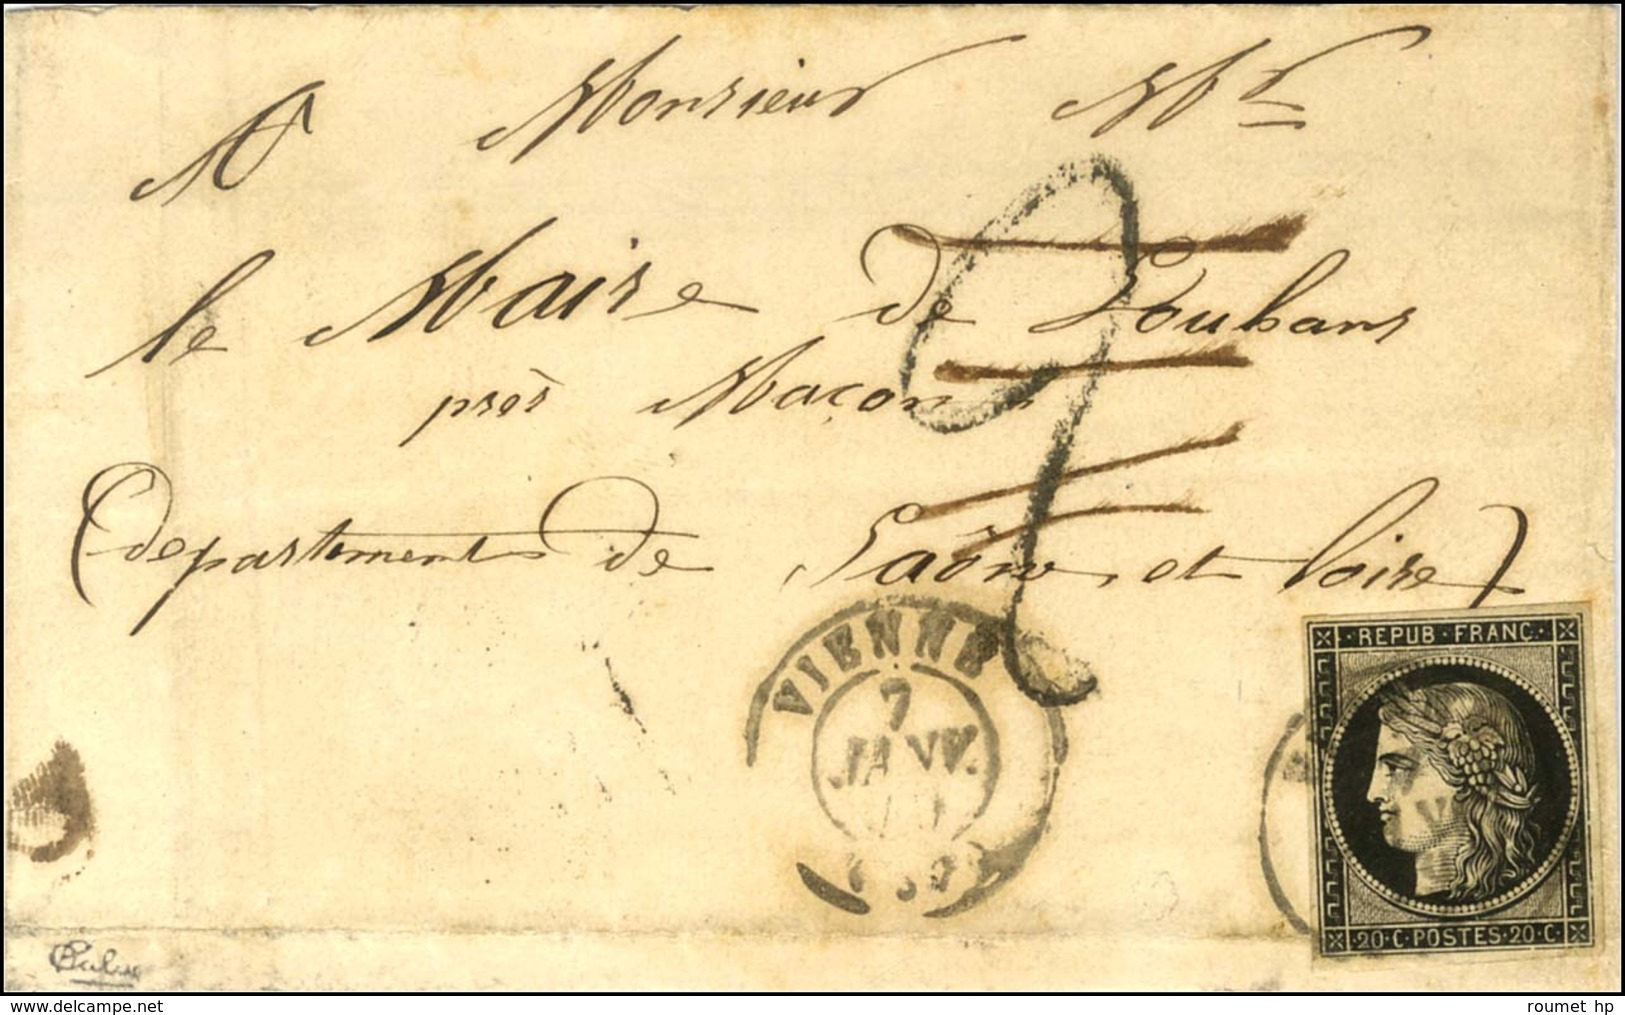 A Monsieur Mr
le Maire de Louhans
près Maçon
(département de Saône et Loire)
2
VIENNE
7
JANV.
REPUB·FRANC·
·20·C·POSTES·20·C·
roumet hp